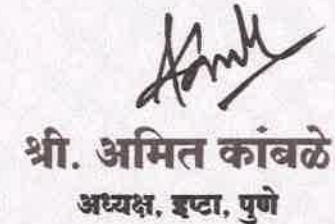 श्री. अमित कांबळे
अध्यक्ष, इप्टा, पुणे